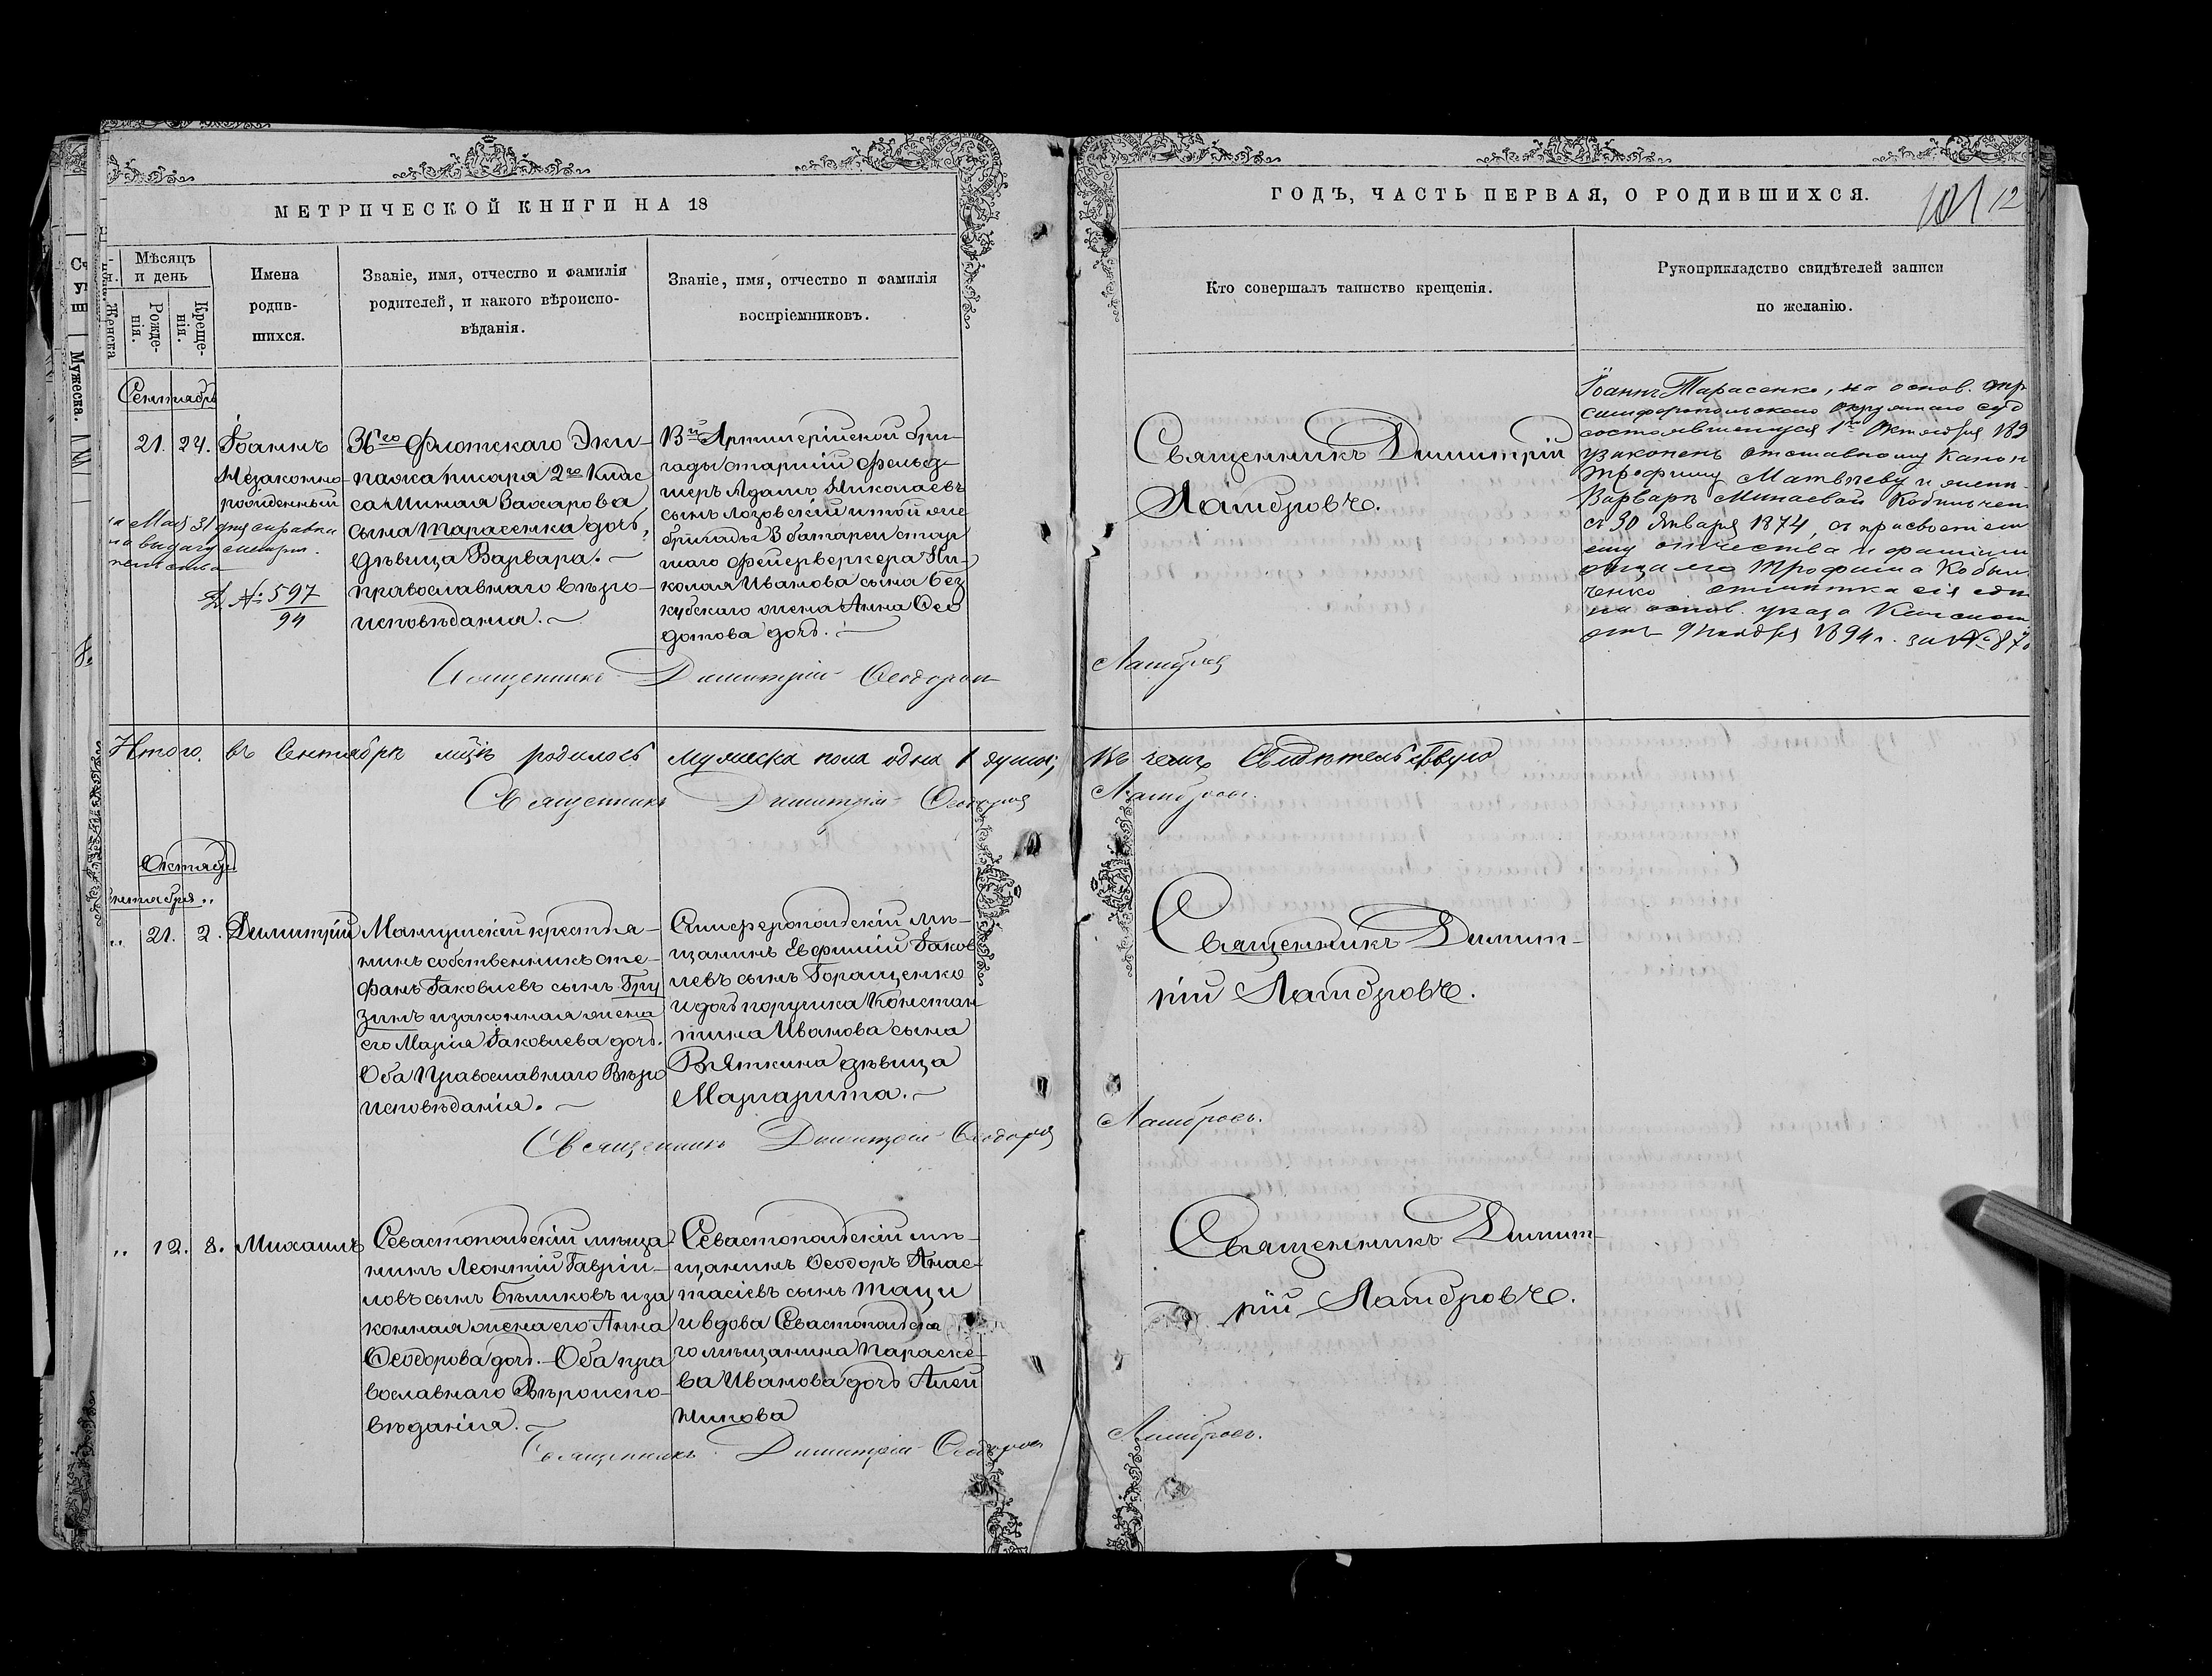 МЕТРИЧЕСКОЙ КНИГИ НА 18
ГОДЪ, ЧАСТЬ ПЕРВАЯ, О РОДИВШИХСЯ.
101 12
Мѣсяцъ
и день
Рожде-
нія.
Креще-
нія.
Женска
Мужеска.
Имена
родив-
шихся.
Званіе, имя, отчество и фамилія
родителей, и какого вѣроиспо-
вѣданія.
Званіе, имя, отчество и фамилія
воспріемниковъ.
Кто совершалъ таинство крещенія.
Рукоприкладство свидѣтелей записи
по желанію.
Сентябрь
21. 24.
Іоаннъ
Незаконно-
рожденный
Мая 31 дня справка
на выдачу метрич.
№ 597
94
36го Флотскаго Эки-
пажа писаря 2го Клас
са Миная Захарова
сына Тарасенка дочь,
дѣвица Варвара.
православнаго вѣро-
исповѣданія.
13й Артилерійской бри-
гады старшій фельд-
шеръ Адамъ Николаевъ
сынъ Лозовскій и той же
бригады 3 батареи стар
шаго фейерверкера Ни-
колая Иванова сына Без
кубскаго жена Анна Ѳео
дотова дочь.
Священникъ Димитрій
Ламбровъ.
Іоаннъ Тарасенко, на основ.
симферопольскаго Окружнаго суд
состоявшагося 1го Октября 189
узаконенъ отставному Канон
Трофиму Матвѣеву и жены
Варварѣ Минаевой
съ 30 Января 1874, съ присвоеніем
ему отчества и фаміліи
отца его Трофима Кобыл
ченко. отмѣтка сія сдѣл
на основ. указа Консист
отъ 9 ноября 1894 г. за № 87
Священникъ Димитрій Ѳеодоровъ Ламбровъ
Итого въ Сентябрѣ мцѣ родилось мужеска пола одна 1 душа; въ чемъ Свидѣтельствую
Священникъ Димитрій Ѳеодоровъ Ламбровъ.
Октябрь
Сентября
21. 2.
Димитрій
Мангушскій крестья-
нинъ собственникъ Сте-
фанъ Іаковлевъ сынъ Гру
зинъ и законная жена
его Марія Іаковлева дочь.
Оба Православнаго Вѣро
исповѣданія.
Симферопольскій мѣ-
щанинъ Евфимій Іаков
левъ сынъ Горащенко
и дочь поручика Констан
тина Иванова сына
Вяткина дѣвица
Маргарита.
Священникъ Димит-
рій Ламбровъ.
Священникъ Димитрій Ѳеодоровъ Ламбровъ.
12. 8.
Михаилъ
Севастопольскій мѣща
нинъ Леонтій Гавріи-
ловъ сынъ Бѣликовъ и за
конная жена его Анна
Ѳеодорова дочь. Оба пра
вославнаго Вѣроиспо-
вѣданія.
Севастопольскій мѣ-
щанинъ Ѳеодоръ Анас-
тасіевъ сынъ Таци
и вдова Севастопольска
го мѣщанина Параске-
ва Иванова дочь Алей
никова
Священникъ Димит-
рій Ламбровъ.
Священникъ Димитрій Ѳеодоровъ Ламбровъ.